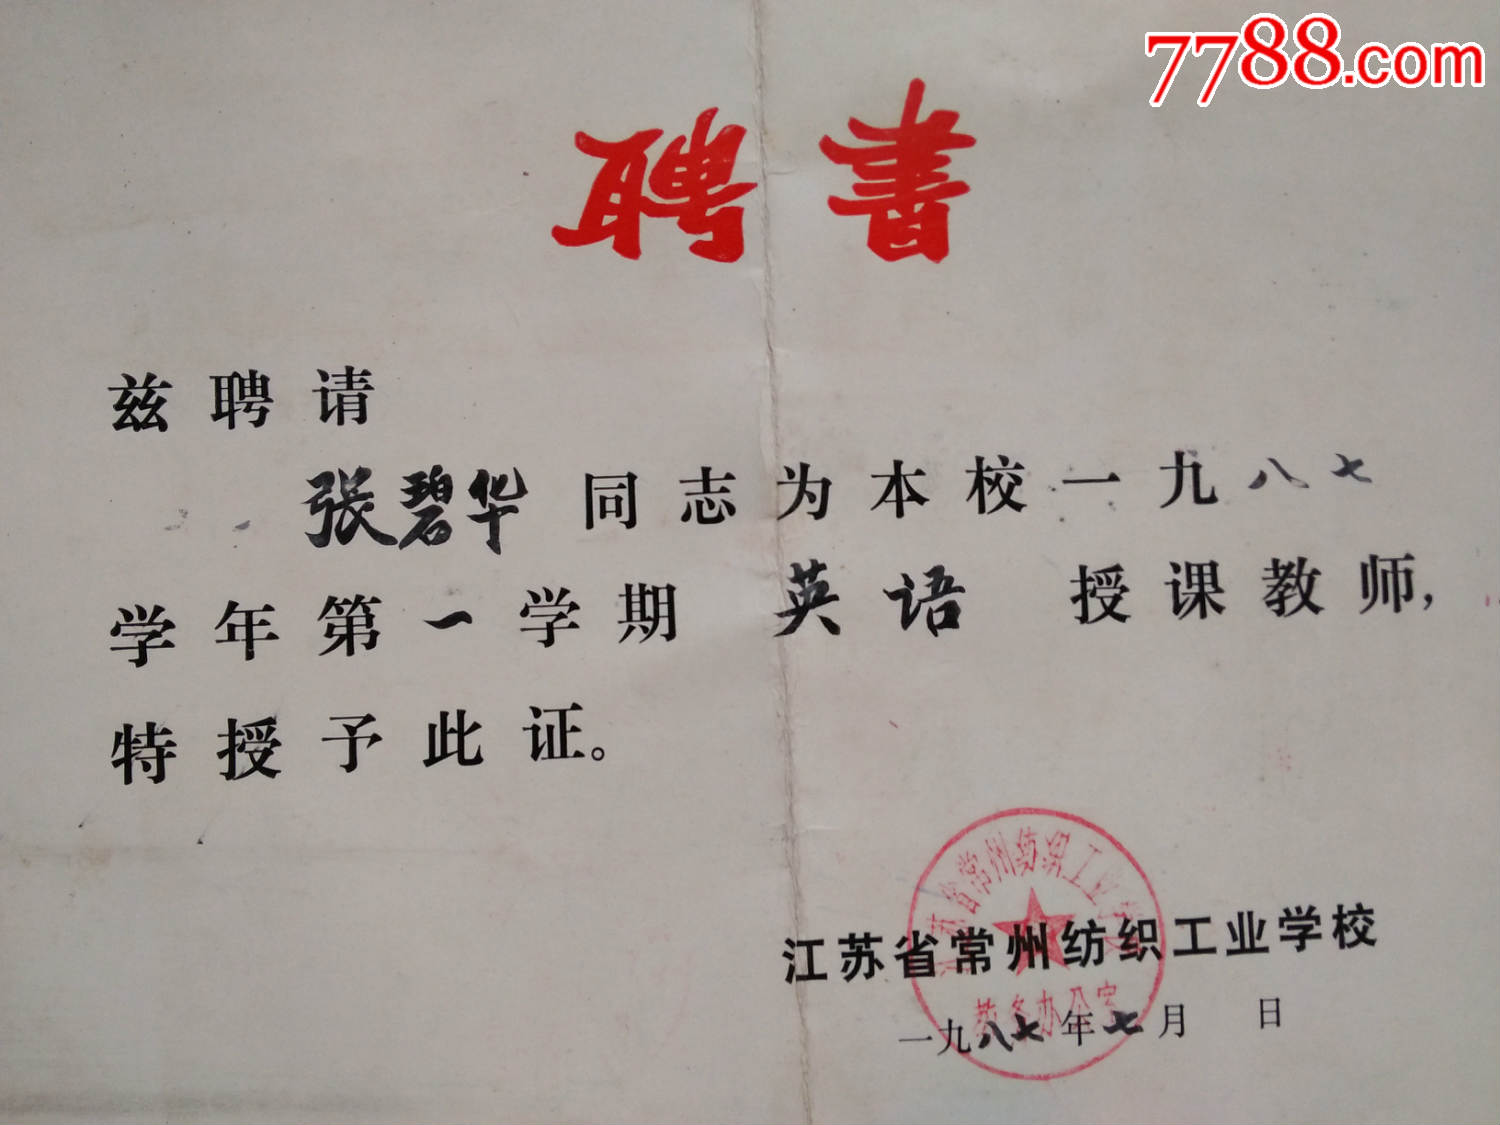 7788.com
聘書
兹聘请
张碧华同志为本校一九八七
学年第一学期 英语 授课教师，
特授予此证。
江苏省常州纺织工业学校
教务办公室
江苏省常州纺织工业学校
一九八七年七月 日